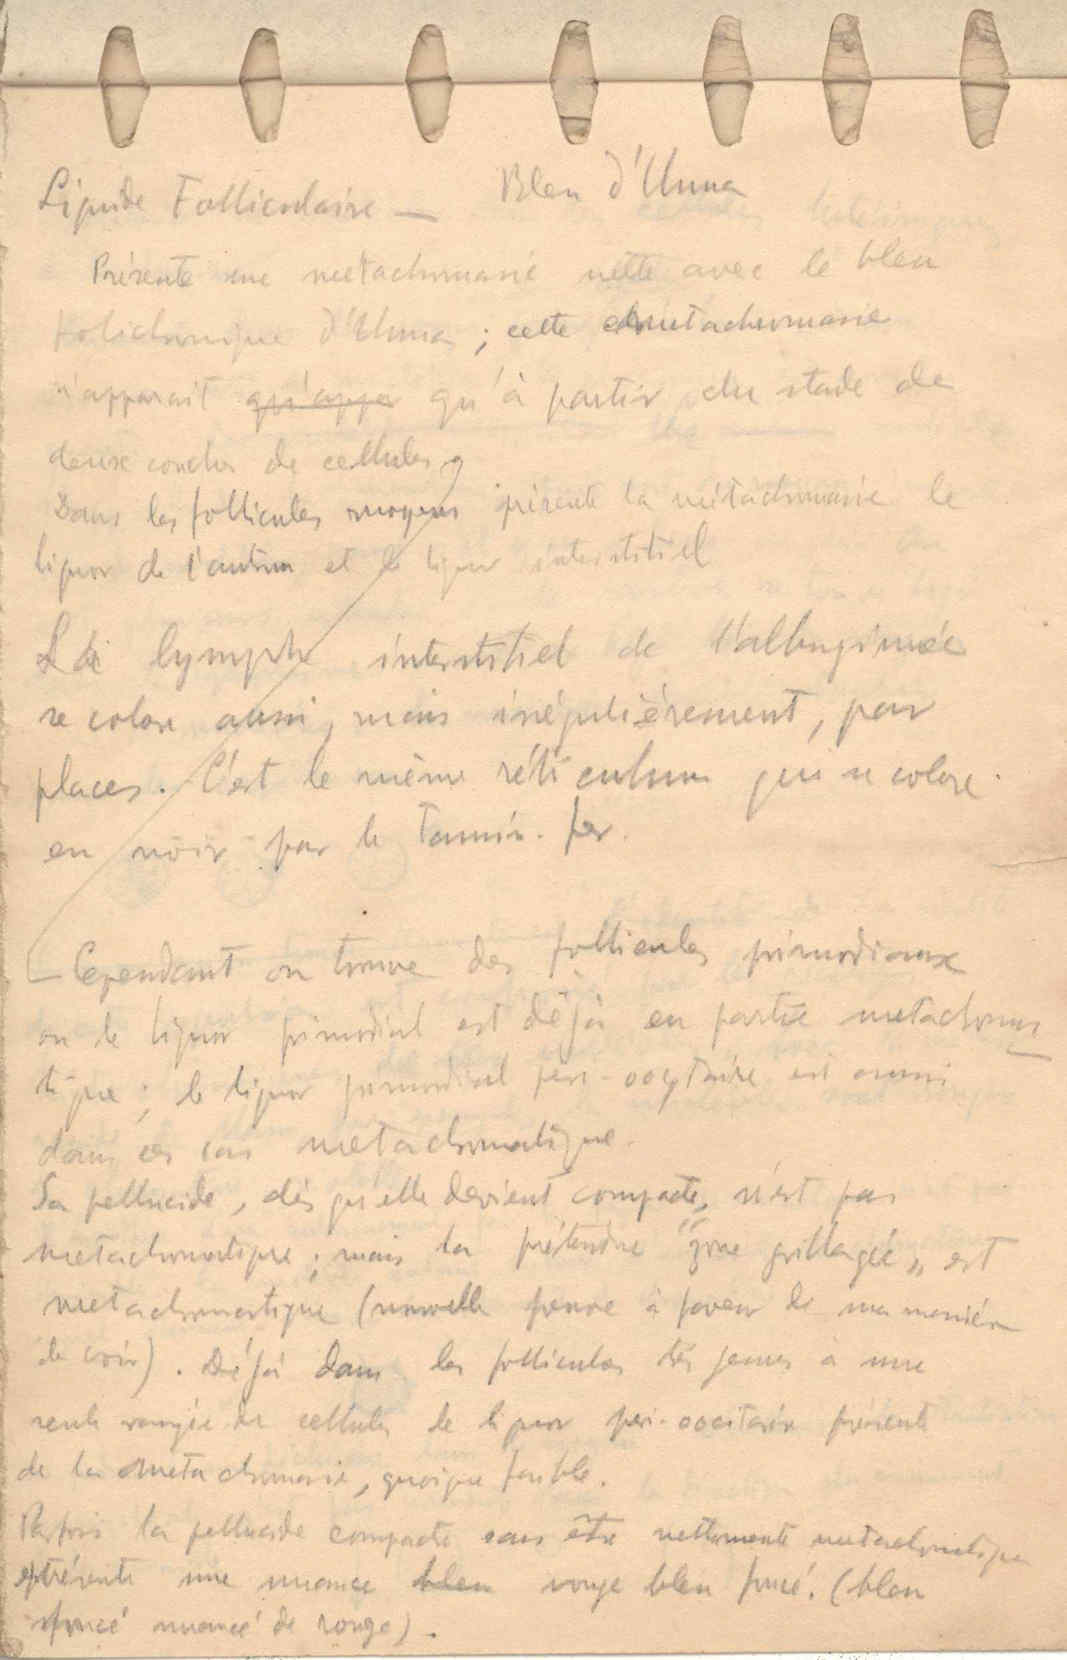 Liquide Folliculaire — Bleu d'Unna
Présente une metachromasie nette avec le bleu
polichromique d'Unna ; cette metachromasie
n'apparait qu'appa qu'à partir du stade de
deux couches de cellules
Dans les follicules moyens présente la métachromasie le
liquor de l'antrum et le liquor interstitiel
La lymphe interstitiel de l'albuginée
se colore aussi, mais irrégulièrement, par
places. C'est le même réticulum qui se colore
en noir par le Tannin-fer.
— Cependant on trouve des follicules primordiaux
ou le liquor primordial est déjà en partie metachroma
tique ; le liquor primordial peri-oocytaire est aussi
dans ces cas metachromatique.
La pellucide, dès qu'elle devient compacte, n'est pas
metachromatique ; mais la prétendue "zone grillagée„ est
metachromatique (nouvelle preuve à faveur de ma manière
de voir). Déjà dans les follicules très jeunes à une
seule rangée de cellules le liquor peri-oocitaire présente
de la metachromasie, quoique faible.
Parfois la pellucide compacte sans être nettemente metachromatique
présente une nuance bleu rouge bleu foncé. (bleu
foncé nuancé de rouge).